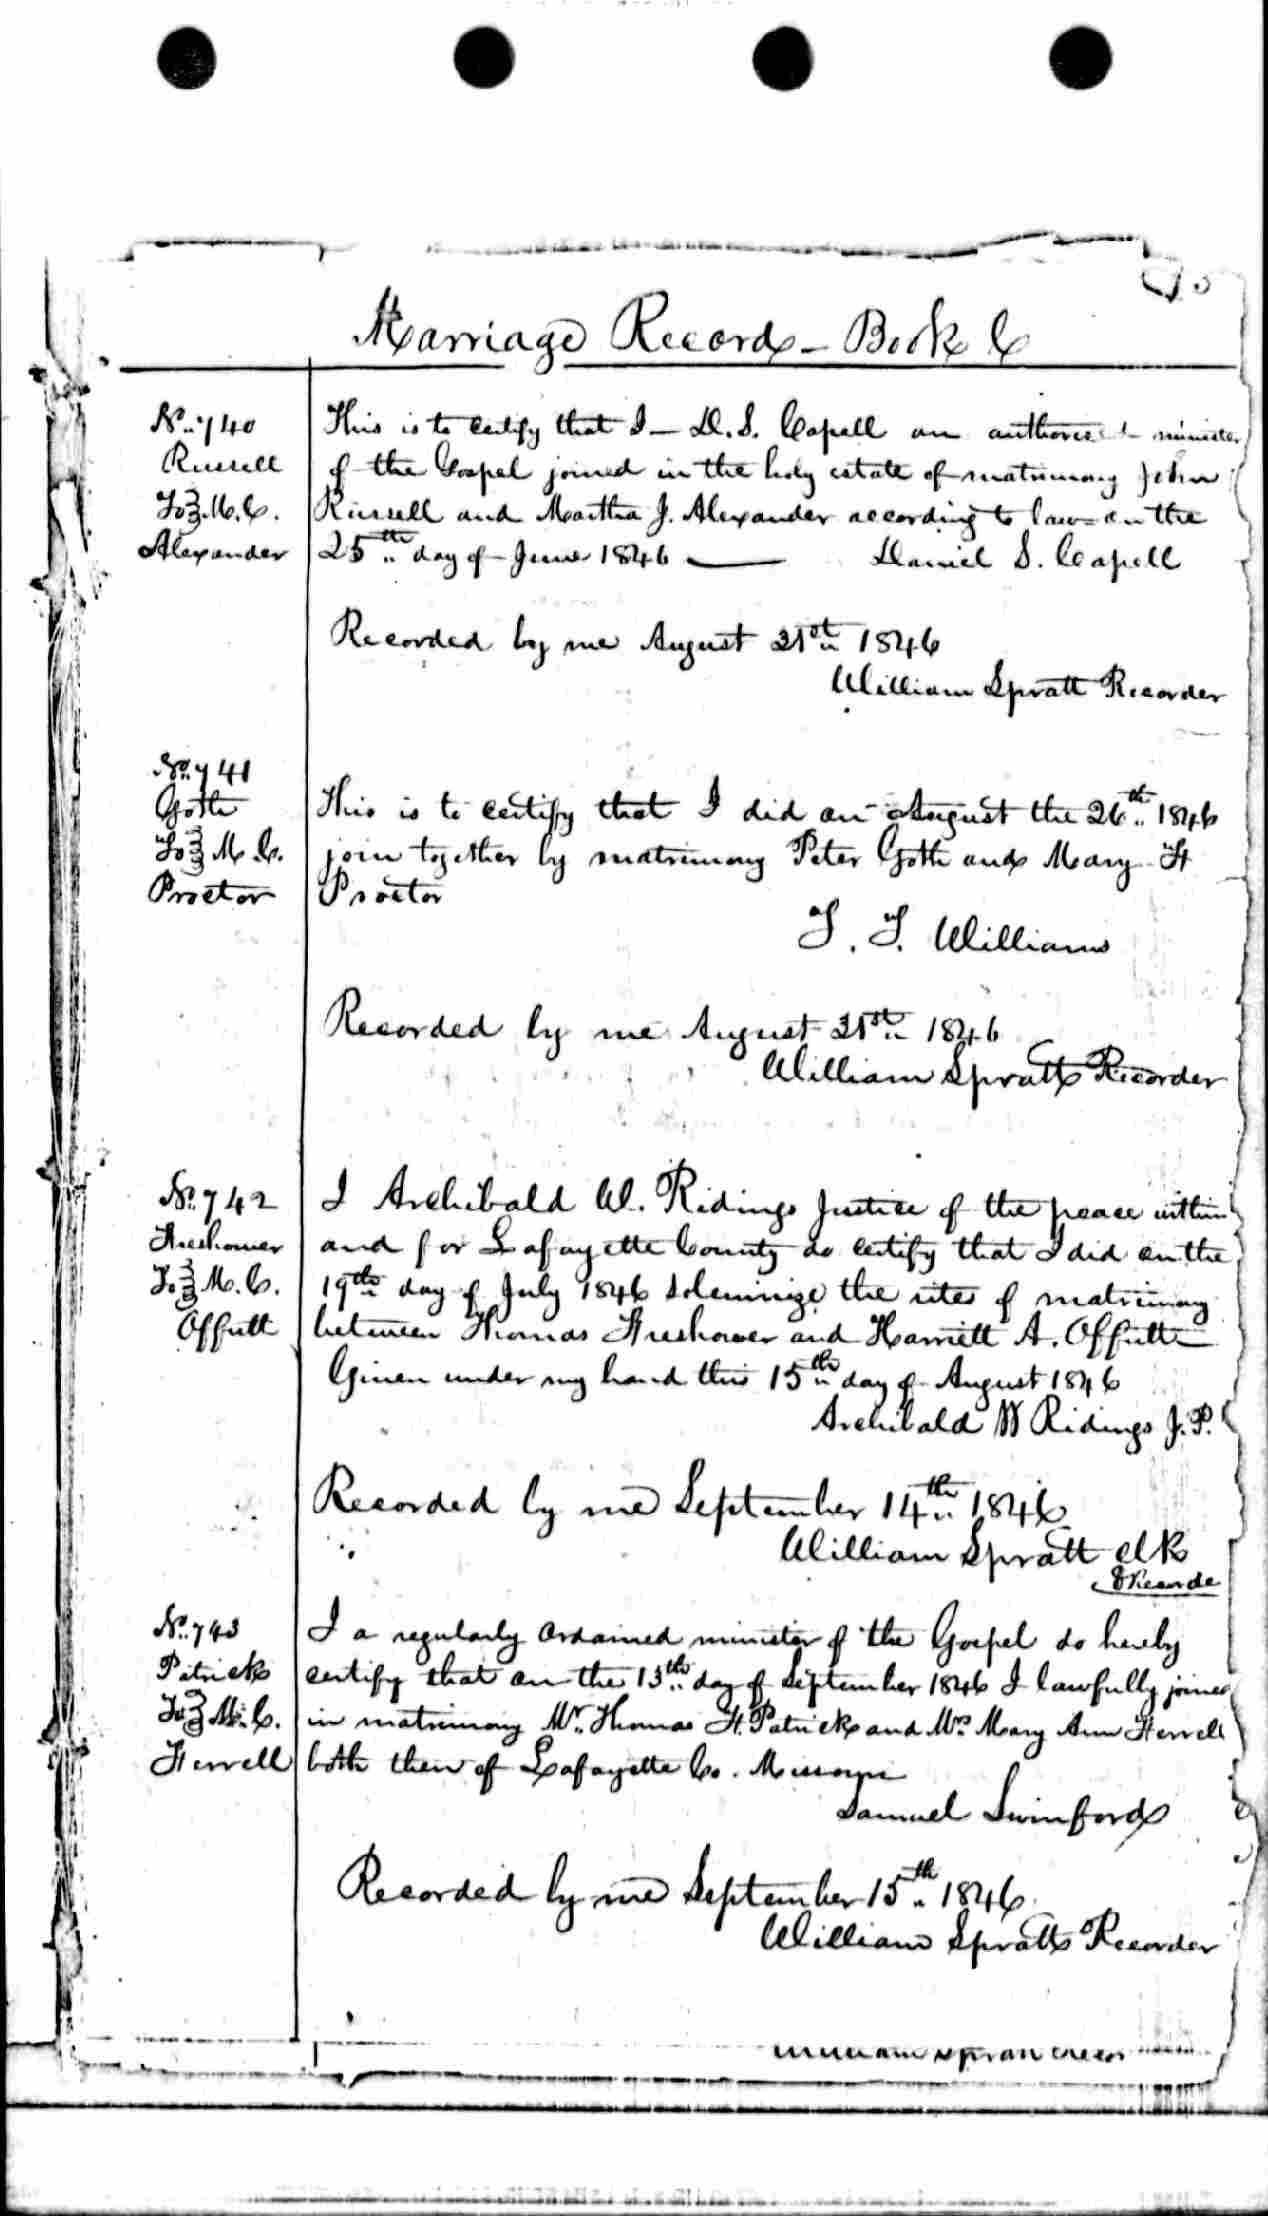 Marriage Record - Book C
No. 740
Russell
To } M.C.
Alexander
This is to certify that I - D. S. Capell an authorised minister
of the Gospel joined in the holy estate of matrimony John
Russell and Martha J. Alexander according to law on the
25th day of June 1846 — Daniel S. Capell
Recorded by me August 31st 1846
William Spratt Recorder
No. 741
Goth
To } M.C.
Proctor
This is to certify that I did on August the 26th 1846
join together by matrimony Peter Goth and Mary H
Proctor
T. T. Williams
Recorded by me August 31st 1846
William Spratt Recorder
No. 742
Freshower
To } M.C.
Offutt
I Archibald W. Ridings Justice of the peace within
and for Lafayette County do certify that I did on the
19th day of July 1846 Solemnize the rites of matrimony
between Thomas Freshower and Harriett A. Offutt
Given under my hand this 15th day of August 1846
Archibald W Ridings J.P.
Recorded by me September 14th 1846
William Spratt clk
& Recorde
No. 743
Patrick
To } M.C.
Herrell
I a regularly ordained minister of the Gospel do hereby
certify that on the 13th day of September 1846 I lawfully joined
in matrimony Mr. Thomas H. Patrick and Mrs Mary Ann Herrell
both then of Lafayette Co. Missouri
Samuel Swinford
Recorded by me September 15th 1846
William Spratt Recorder